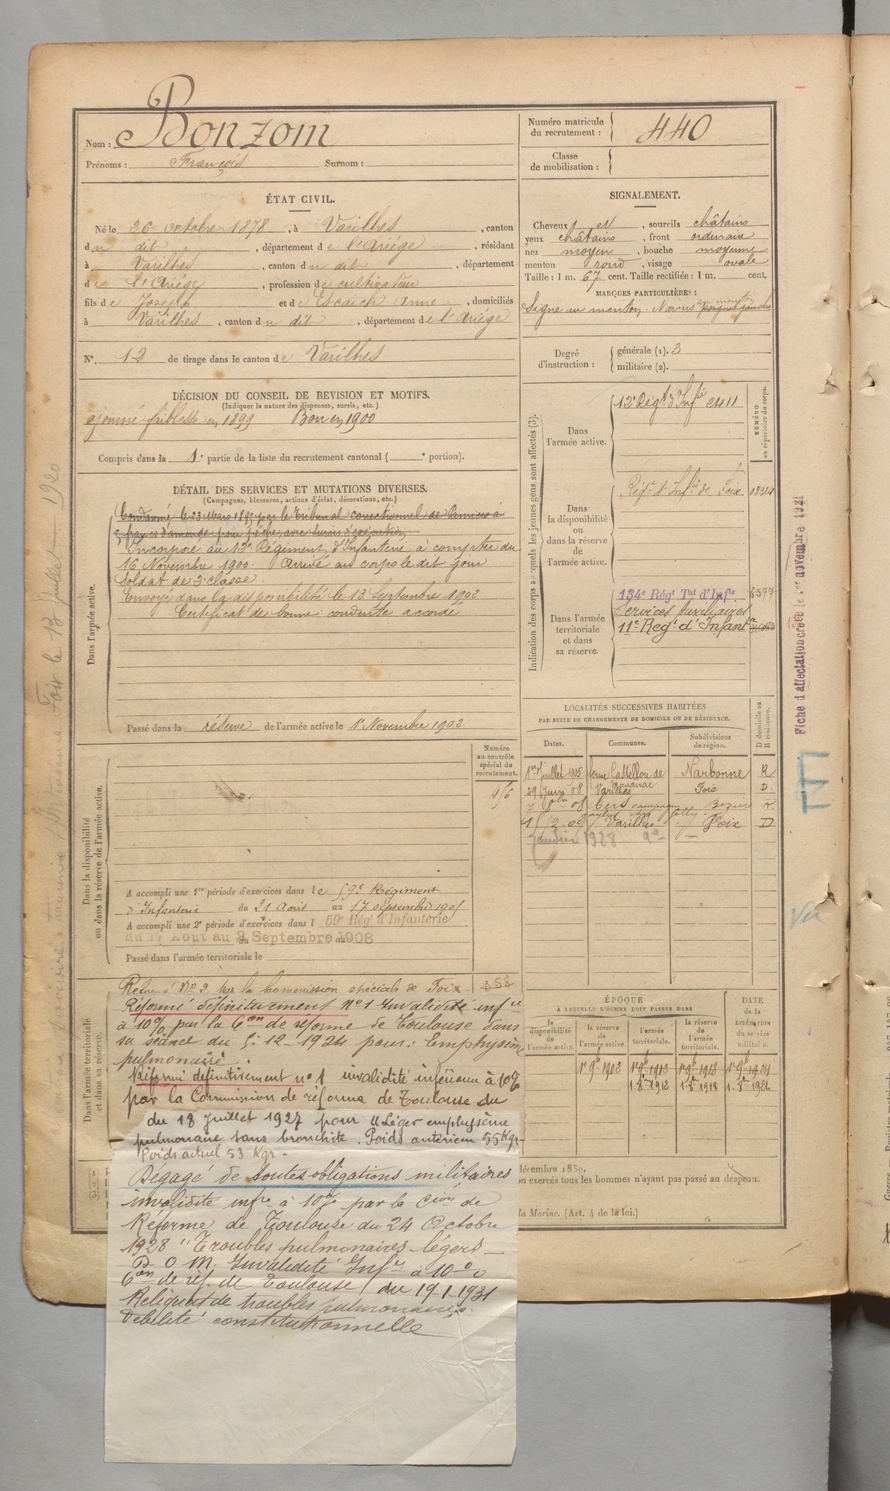 Nom : Bonzom
Prénoms : François Surnom :
Numéro matricule du recrutement : 440
Classe de mobilisation :
ÉTAT CIVIL.
Né le 26 octobre 1878, à Varilhes, canton
du dit, département de l'Ariège, résidant
à Varilhes, canton du dit, département
de l'Ariège, profession de cultivateur
fils de Joseph et de Escaich Anne, domiciliés
à Varilhes, canton du dit, département de l'Ariège
N° 12 de tirage dans le canton de Varilhes
SIGNALEMENT.
Cheveux et, sourcils châtains
yeux châtains, front ordinaire
nez moyen, bouche moyenne
menton rond, visage ovale
Taille : 1 m. 67 cent. Taille rectifiée : 1 m. cent.
MARQUES PARTICULIÈRES :
Signe au menton.
Degré d'instruction : générale (1). 3
militaire (2).
DÉCISION DU CONSEIL DE REVISION ET MOTIFS.
(Indiquer la nature des dispenses, sursis, etc.)
ajourné faiblesse en 1899 Bon en 1900
Compris dans la 1e partie de la liste du recrutement cantonal ( e portion).
DÉTAIL DES SERVICES ET MUTATIONS DIVERSES.
(Campagnes, blessures, actions d'éclat, décorations, etc.)
Dans l'armée active.
Condamné le 23 Mars par le tribunal correctionnel de Pamiers à
francs d'amende pour pêche avec sursis d'exécution
Incorporé au 12e Régiment d'Infanterie à compter du
16 Novembre 1900. Arrivé au corps le dit jour
Soldat de 2e classe.
Envoyé dans la disponibilité le 13 Septembre 1902
Certificat de bonne conduite accordé
Passé dans la réserve de l'armée active le 1er Novembre 1902
Indication des corps auxquels les jeunes gens sont affectés (3).
NUMÉRO au répertoire du corps.
Dans l'armée active.
12e Régt d'Infie
Dans la disponibilité ou dans la réserve de l'armée active.
Régt d'Infie de Foix
Dans l'armée territoriale et dans sa réserve.
134e Régt Tal d'Infie 6577
Services Auxiliaires
11e Regt d'Infantie
Fiche d'affectation créée le 1er novembre 1921
LOCALITÉS SUCCESSIVES HABITÉES
PAR SUITE DE CHANGEMENTS DE DOMICILE OU DE RÉSIDENCE.
D domicile ou R résidence.
Dates. Communes. Subdivisions de région.
1er juillet 1905 Narbonne R
29 Juin 08 Varilhes Foix D
Cers campagne Beziers R
Varilhes Foix D
Janvier 1928
Dans la disponibilité ou dans la réserve de l'armée active.
Numéro au contrôle spécial du recrutement.
A accompli une 1re période d'exercices dans le 59e Régiment
d'Infanterie du 21 Aout au 17 septembre 1905
A accompli une 2e période d'exercices dans l 59e Rég d'Infanterie
Aout au Septembre 1908
Passé dans l'armée territoriale le
Dans l'armée territoriale et dans sa réserve.
Réformé N° 2 par la Commission spéciale de Foix
Réformé définitivement N° 1 Invalidité infre
à 10% par la Con de réforme de Toulouse dans
sa séance du 12-1924 pour : Emphysème
pulmonaire.
Réformé définitivement n° 1 invalidité inférieure à 10%
par la Commission de réforme de Toulouse du
du 18 Juillet 1927 pour "Léger emphysème
pulmonaire sans bronchite. Poids antérieur 55 Kgr-
Poids actuel 53 Kgr-
Dégagé de toutes obligations militaires
invalidité infre à 10% par la Cion de
Réforme de Toulouse du 24 Octobre
1928 "Troubles pulmonaires légers_
Invalidité Infre à 10%
Con de réf. de Toulouse du 19-1-1931
Reliquat de troubles pulmonaires.
Débilité constitutionnelle
ÉPOQUE
À LAQUELLE L'HOMME DOIT PASSER DANS
la disponibilité de l'armée active.
la réserve de l'armée active.
l'armée territoriale.
la réserve de l'armée territoriale.
DATE de la LIBÉRATION du service militaire.
1er 9bre 1902
1-5-1912
on exercés tous les hommes n'ayant pas passé au drapeau.
la Marine. (Art. 4 de la loi.)